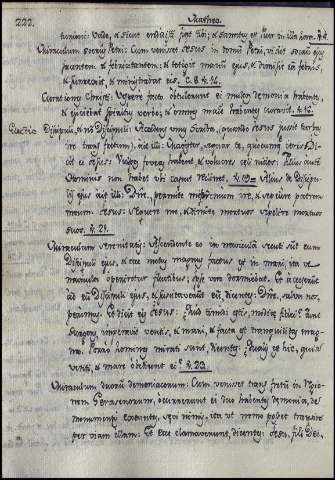 222. Matheo.
turioni: Vade, et sicut credidisti fiat tibi; et sanatus est puer in illa hora.
Miraculum socrus Petri: Cum venisset Jesus in domum Petri, vidit socrum ejus
jacentem et febricitantem: et tetigit manum ejus, et dimisit eam febris,
et surrexit, et ministrabat eis. C. 8. 14.
Curationes Christi: Vespere facto obtulerunt ei multos demonia habentes,
et ejiciebat spiritus verbo; et omnes male habentes curavit. 16.
Discipuli, Accedens unus Scriba, (quando Jesus jussit turbas
ire trans fretum), ait illi: Magister, sequar te, quocumque ieris. Di-
cit ei Jesus: Vulpes foveas habent, et volucres coeli nidos: Filius autem
Hominis non habet ubi caput reclinet. Alius de Discipu-
lis ejus ait illi: Dne, permitte me primum ire, et sepelire patrem
meum. Jesus: Sequere me, et dimitte mortuos sepelire mortuos
suos. 21.
Miraculum serenitatis: Ascendente eo in naviculam secuti sunt eum
Discipuli ejus, et ecce motus magnus factus est in mari, ita ut
navicula operiretur fluctibus, ipse vero dormiebat. Et accesserunt
ad eum Discipuli ejus, et suscitaverunt eum, dicentes: Dne, salva nos,
perimus. Et dicit eis Jesus: Quid timidi estis, modicae fidei? Tunc
surgens, imperavit ventis, et mari, et facta est tranquillitas mag-
na. Porro homines mirati sunt, dicentes: Qualis est hic, quia
venti, et mare obediunt ei?
Miraculum duorum demoniacorum: Cum venisset trans fretum in regio-
nem Gerasenorum, occurrerunt ei duo habentes demonia, de
monumentis exeuntes, saevi nimis, ita ut nemo posset transire
per viam illam: Et ecce clamaverunt, dicentes: Jesu, fili Dei,